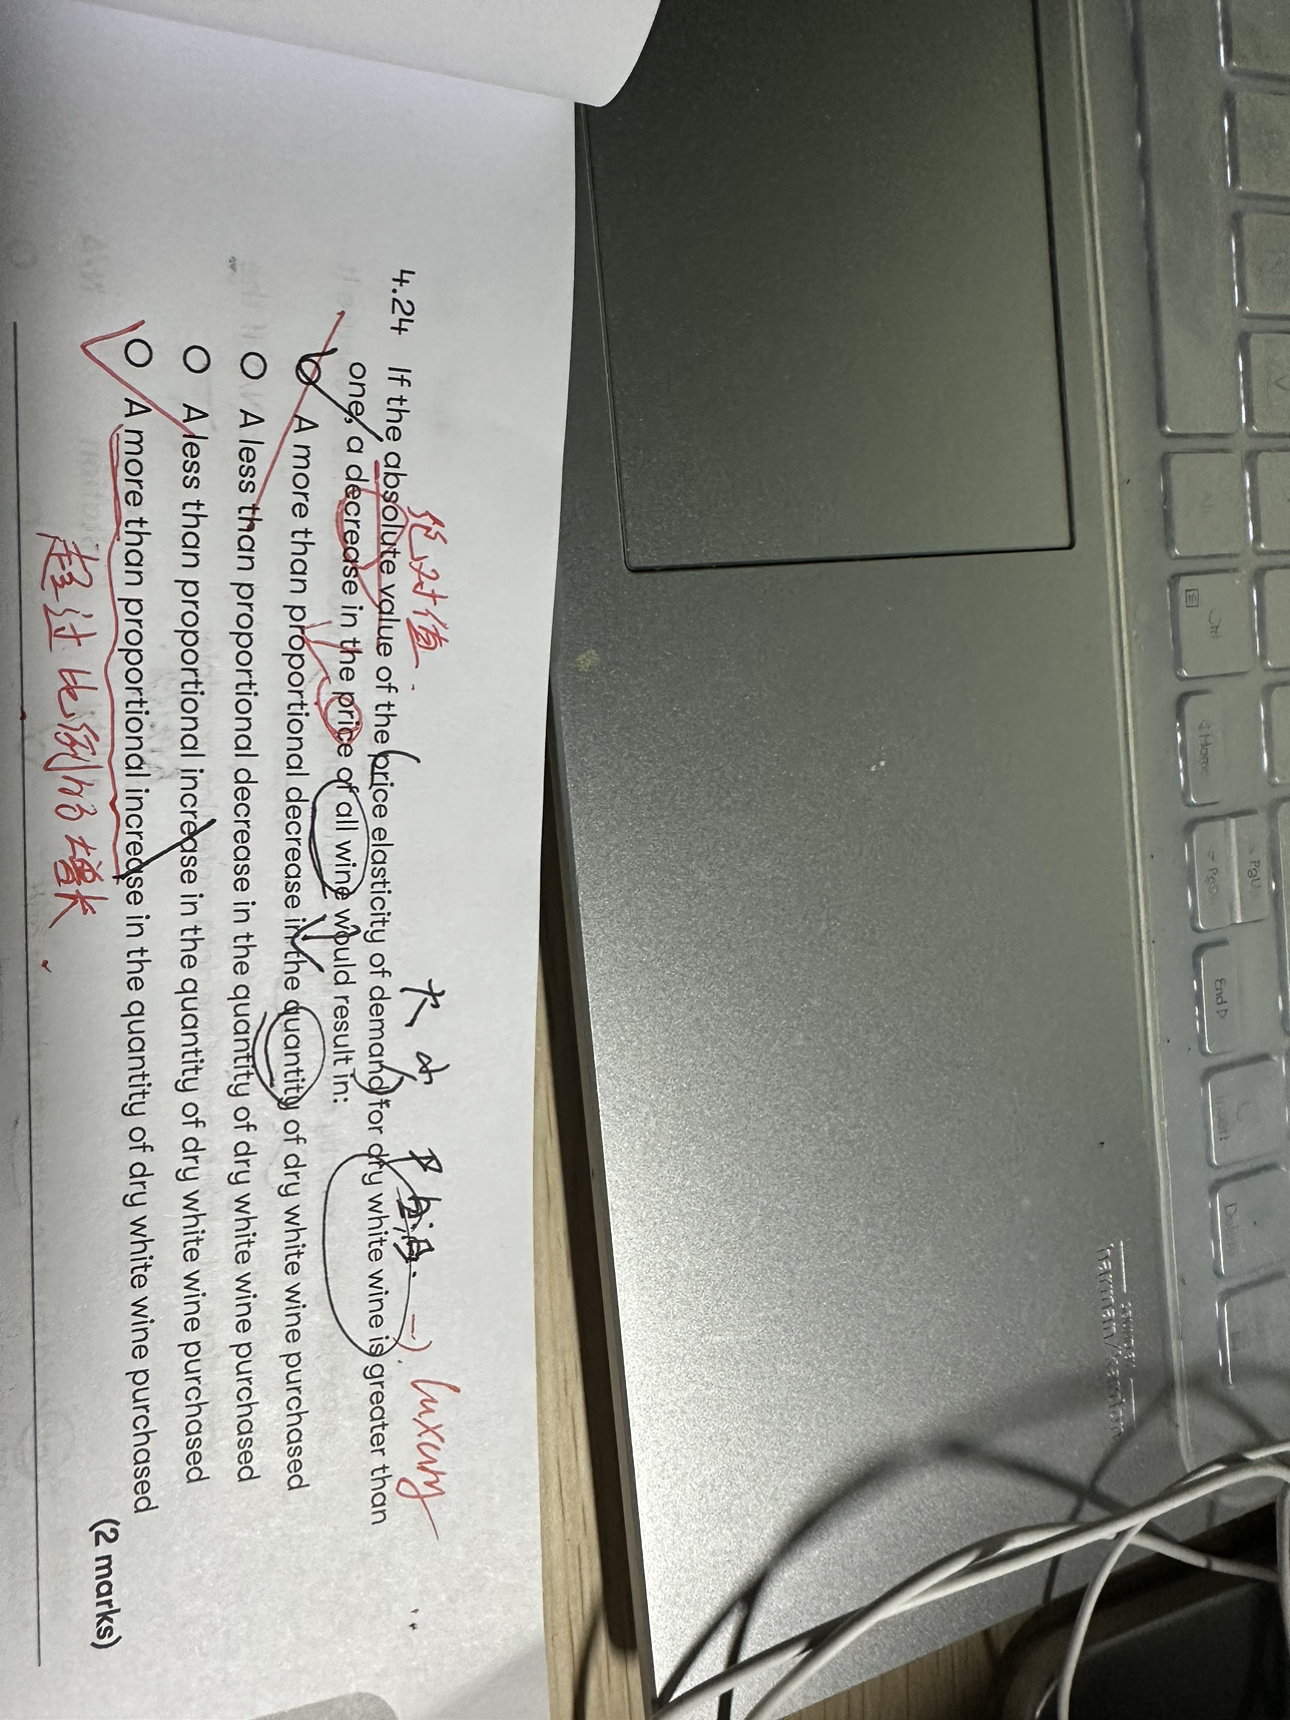 绝对值.
大 小
luxury
4.24 If the absolute value of the price elasticity of demand for dry white wine is greater than
one, a decrease in the price of all wine would result in:
A more than proportional decrease in the quantity of dry white wine purchased
A less than proportional decrease in the quantity of dry white wine purchased
A less than proportional increase in the quantity of dry white wine purchased
A more than proportional increase in the quantity of dry white wine purchased
(2 marks)
超过比例的增长.
Alt
Ctrl
Home
PgUp
PgDn
End
Insert
harman/kardon